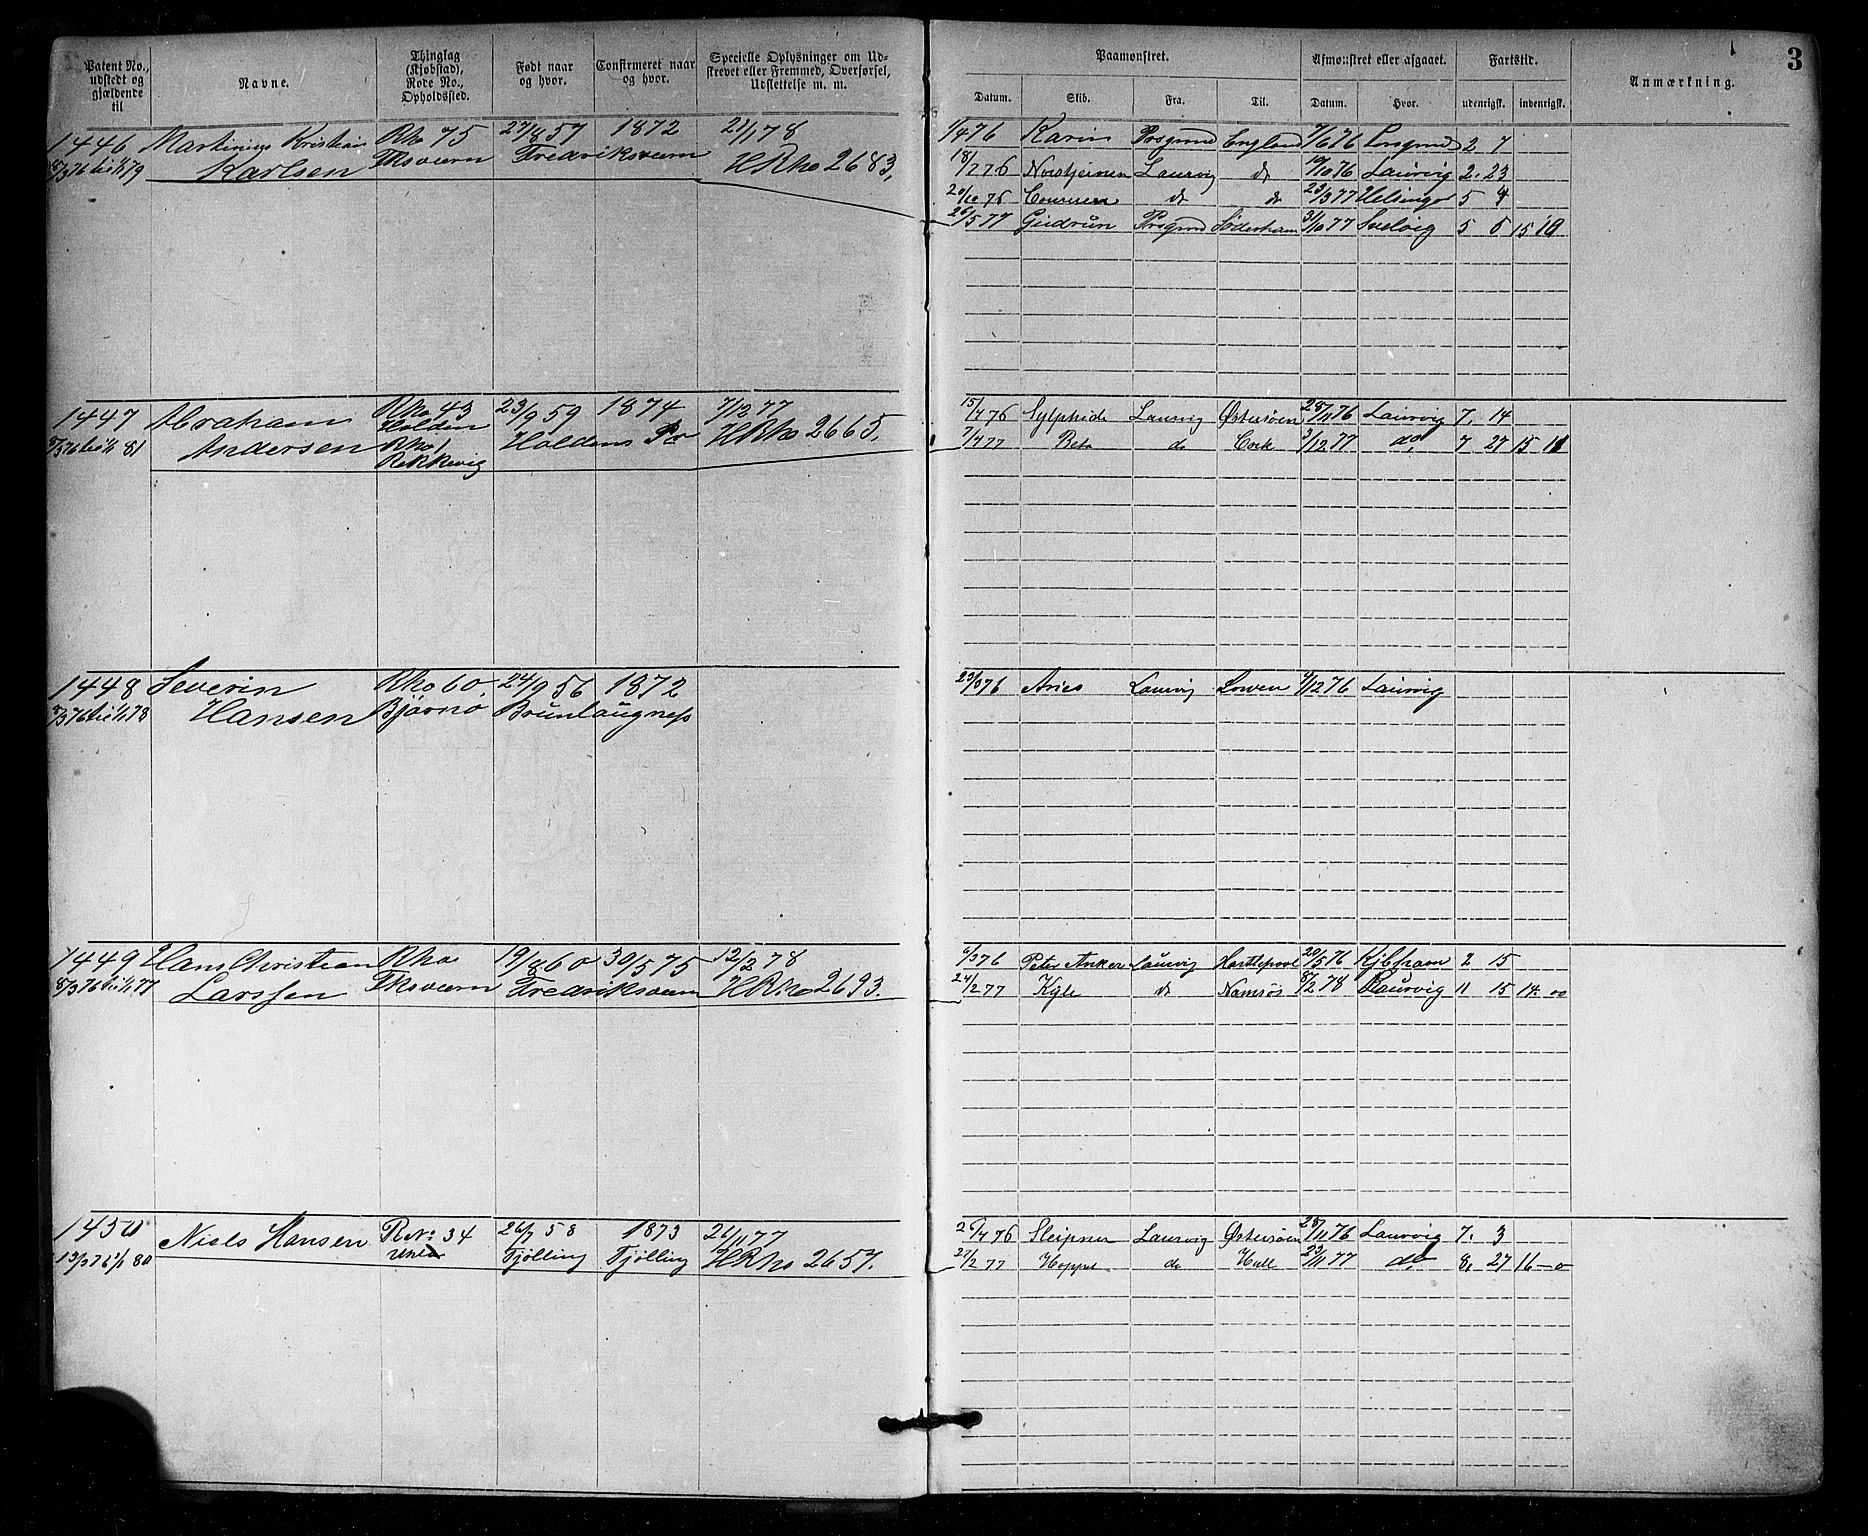 Patent No., udstedt og gjældende til
Navne.
Thinglag (Kjøbstad), Rode No., Opholdssted.
Født naar og hvor.
Confirmeret naar og hvor.
Specielle Oplysninger om Udskrevet eller Fremmed, Overførsel, Udslettelse m. m.
Paamønstret.
Afmønstret eller afgaaet.
Fartstid.
Anmærkning.
3
Datum. Skib. Fra. Til. Datum. Hvor. udenrigsk. indenrigsk.
1446 Martinius Kristian Rno 75 27/8 57 1872 21/1 78
8/3 76 til 1/1 79 Karlsen Fksværn Fredriksværn HRno 2683.
1/4 76 Karin Porsgrund England 7/6 76 Porsgrund 2 7
18/7 76 Nordstjernen Laurvig do 19/10 76 Laurvig 2. 23
20/10 76 do do 23/3 77 Helsingør 5 4
26/5 77 Gudrun Porsgrund Söderhamn 31/10 77 Svelvig 5 5 15 10
1447 Abraham Rno 43 23/9 59 1874 7/12 77
Holden
8/3 76 til 1/1 81 Andersen Rno 1 Holdens HRno 2665.
Rekkevig
15/4 76 Sylphide Laurvig Østersøen 28/11 76 Laurvig 7. 14
7/4 77 Beta do Cork 3/12 77 do, 7 27 15 11
1448 Severin Rno 60. 24/9 56 1872
8/3 76 til 1/1 78 Hansen Bjørnø Brunlaugness
23/3 76 Aries Laurvig 9/12 76 Laurvig
1449 Hans Christian Rno 19/8 60 30/5 75 12/2 78
8/3 76 til 1/1 77 Larssen Fksværn Fredriksværn HRno 2693.
6/3 76 Peter Anker Laurvig Hartlepool 20/5 76 Kjbhavn 2 15
24/2 77 do Namsøs 8/2 78 Laurvig 11 15 14. 00
1450 Niels Hansen R. No 34 26/7 58 1873 26/11 77
13/3 76 1/1 80 Tjølling Tjølling HRno 2657.
26/4 76 Sleipner Laurvig Østersøen 28/11 76 Laurvig 7. 3
27/2 77 Hoppet do Hull 23/11 77 do 8. 27 16 - 0